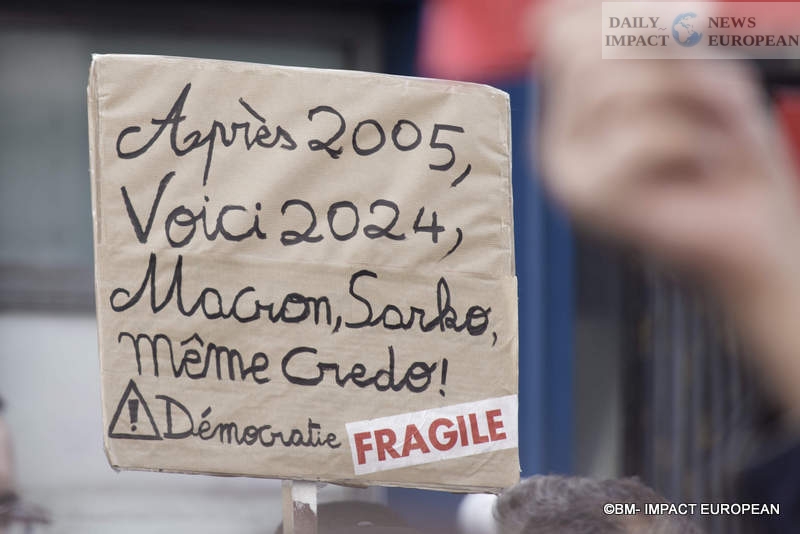 DAILY NEWS
IMPACT EUROPEAN
Après 2005,
Voici 2024,
Macron, Sarko,
même Credo!
⚠ Démocratie FRAGILE
©BM- IMPACT EUROPEAN